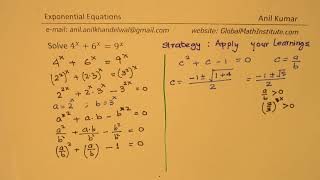 Exponential Equations
Anil Kumar
e-mail: anil.anilkhandelwal@gmail.com
website: GlobalMathInstitute.com
Solve 4ˣ + 6ˣ = 9ˣ
4ˣ + 6ˣ = 9ˣ
(2²)ˣ + (2·3)ˣ = (3²)ˣ
2²ˣ + 2ˣ·3ˣ - 3²ˣ = 0
a² + a·b - b² = 0
a²/b² + a·b/b² - b²/b² = 0
(a/b)² + (a/b) - 1 = 0
Strategy: Apply your Learnings
c² + c - 1 = 0
c = a/b
c = (-1 ± √(1+4))/2 = (-1 ± √5)/2
a/b > 0